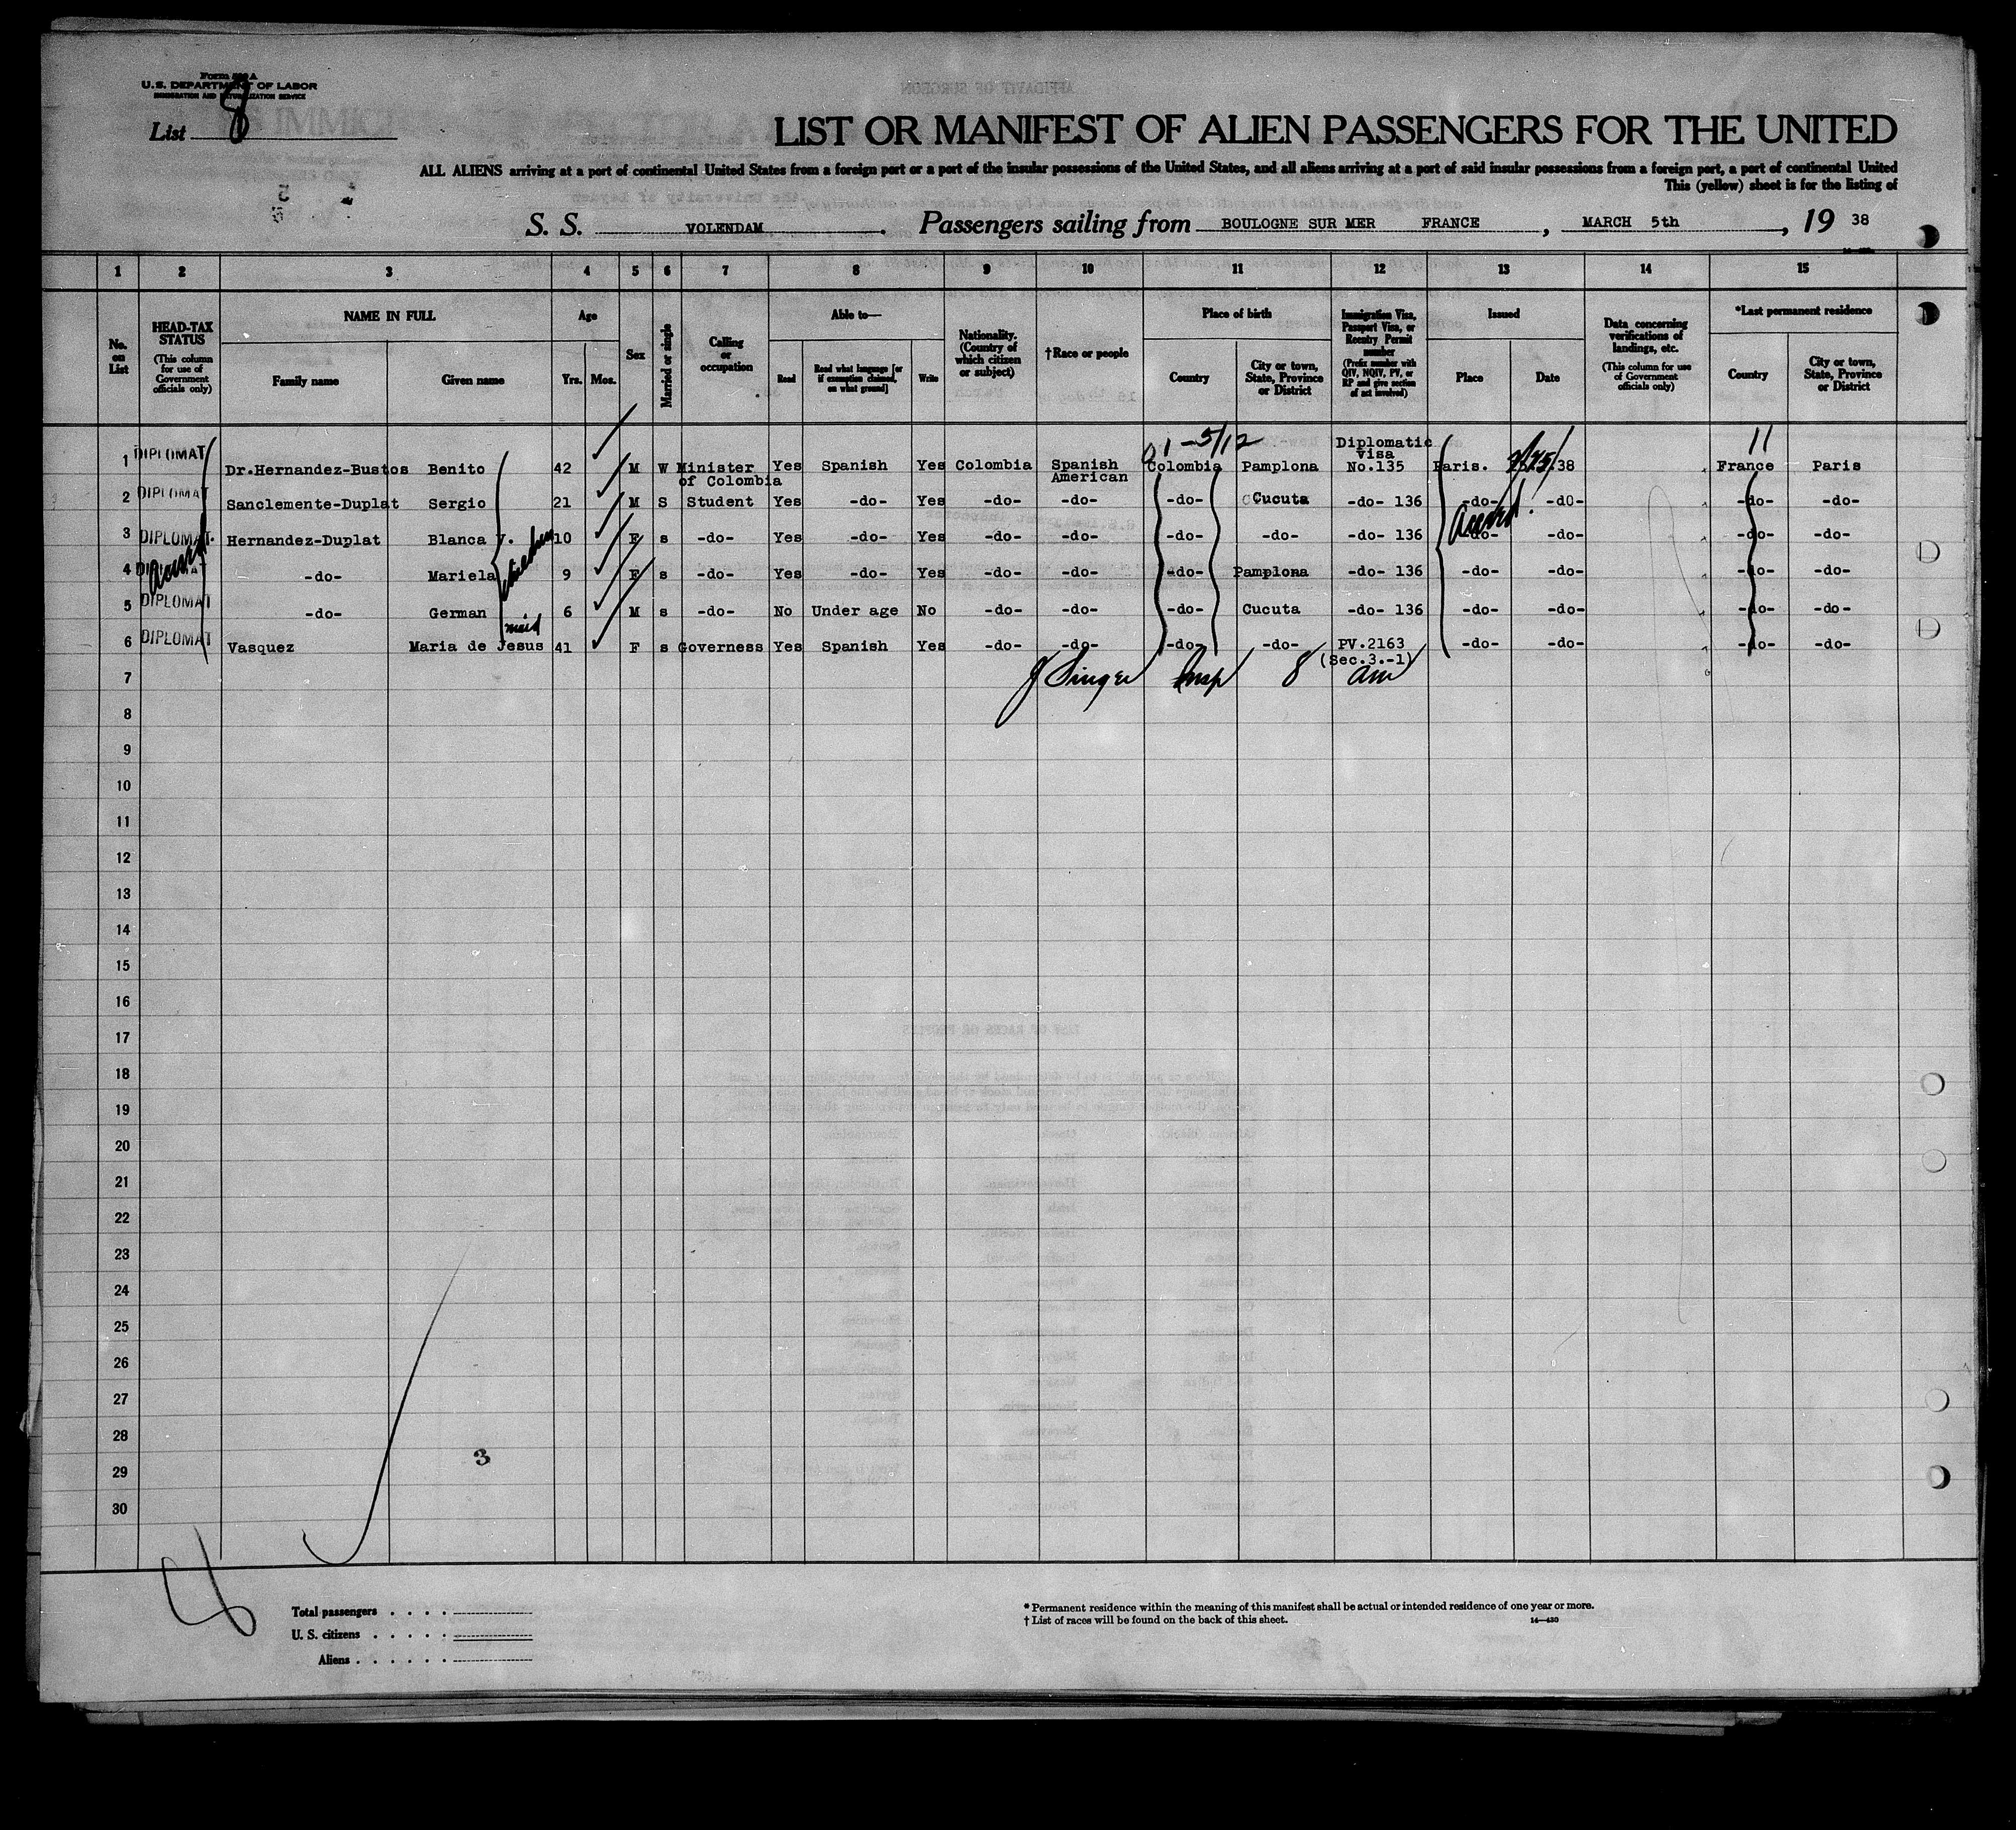 Form 500 A
U.S. DEPARTMENT OF LABOR
IMMIGRATION AND NATURALIZATION SERVICE
List 8
LIST OR MANIFEST OF ALIEN PASSENGERS FOR THE UNITED
ALL ALIENS arriving at a port of continental United States from a foreign port or a port of the insular possessions of the United States, and all aliens arriving at a port of said insular possessions from a foreign port, a port of continental United
This (yellow) sheet is for the listing of
S. S. VOLENDAM. Passengers sailing from BOULOGNE SUR MER FRANCE, MARCH 5th, 19 38
1 2 3 4 5 6 7 8 9 10 11 12 13 14 15
No. on List
HEAD-TAX STATUS
(This column for use of Government officials only)
NAME IN FULL
Family name
Given name
Age
Yrs.
Mos.
Sex
Married or single
Calling or occupation
Able to—
Read
Read what language [or if exemption claimed, on what ground]
Write
Nationality. (Country of which citizen or subject)
†Race or people
Place of birth
Country
City or town, State, Province or District
Immigration Visa, Passport Visa, or Reentry Permit number
(Prefix number with QIV, NQIV, PV, or RP and give section of act involved)
Issued
Place
Date
Data concerning verifications of landings, etc.
(This column for use of Government officials only)
*Last permanent residence
Country
City or town, State, Province or District
01-5/12
11
1 DIPLOMAT Dr.Hernandez-Bustos Benito 42 M W Minister of Colombia Yes Spanish Yes Colombia Spanish American Colombia Pamplona Diplomatic visa No.135 Paris. 38 France Paris
2 DIPLOMAT Sanclemente-Duplat Sergio 21 M S Student Yes -do- Yes -do- -do- -do- Cucuta -do- 136 -do- -dO- -do- -do-
3 DIPLOMAT. Hernandez-Duplat Blanca V. 10 F s -do- Yes -do- Yes -do- -do- -do- -do- -do- 136 -do- -do- -do- -do-
4 DIPLOMAT -do- Mariela 9 F s -do- Yes -do- Yes -do- -do- -do- Pamplona -do- 136 -do- -do- -do- -do-
children
5 DIPLOMAT -do- German 6 M s -do- No Under age No -do- -do- -do- Cucuta -do- 136 -do- -do- -do- -do-
maid
6 DIPLOMAT Vasquez Maria de Jesus 41 F s Governess Yes Spanish Yes -do- -do- -do- -do- PV.2163 (Sec.3.-1) -do- -do- -do- -do-
7 J Singer Insp 8 am
8
9
10
11
12
13
14
15
16
17
18
19
20
21
22
23
24
25
26
27
28
3
29
30
Total passengers
U. S. citizens
Aliens
* Permanent residence within the meaning of this manifest shall be actual or intended residence of one year or more.
† List of races will be found on the back of this sheet.
14—430